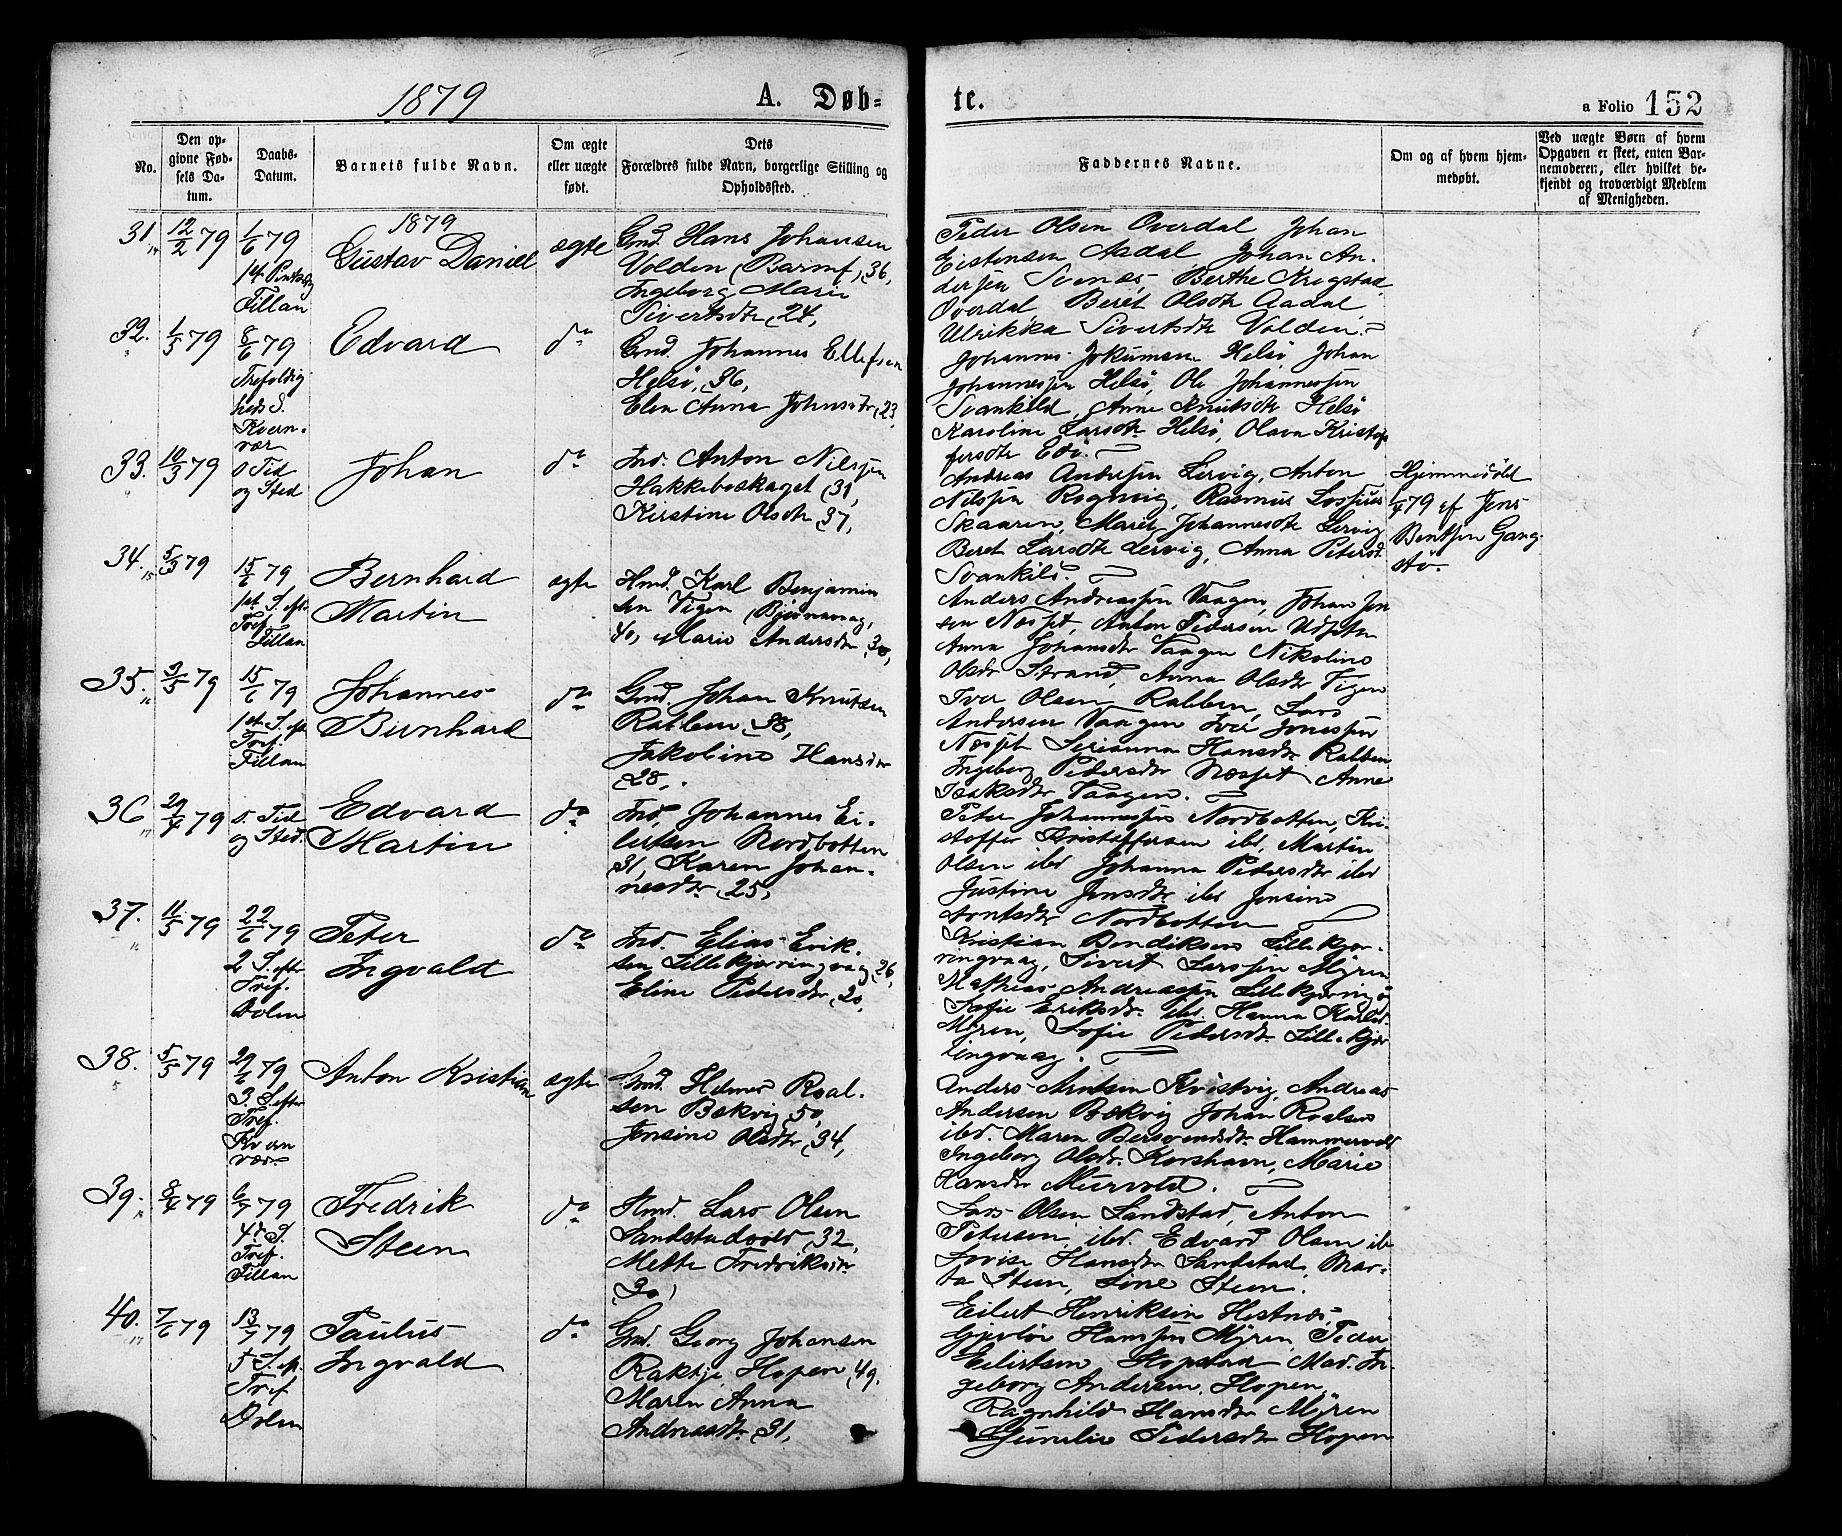 1879
A. Døb-
te.
a Folio 152
No.
Den op-
givne Fød-
sels Da-
tum.
Daabs-
Datum.
Barnets fulde Navn.
Om ægte
eller uægte
født.
Dets
Forældres fulde Navn, borgerlige Stilling og
Opholdssted.
Faddernes Navne.
Om og af hvem hjem-
medøbt.
Ved uægte Børn af hvem
Opgaven er skeet, enten Bar-
nemoderen, eller hvilket be-
kjendt og troværdigt Medlem
af Menigheden.
31.
12/2 79
1/6 79
Fillan
1879
Gustav Daniel
ægte
Gmd. Hans Johansen
Volden (Barmf) (36,
Ingeborg Marie
Sivertsdtr (24,
Peder Olsen Overdal Johan
Eistensen Aadal, Johan An-
dersen Svenæs, Berthe Krogstad
Overdal, Beret Olsdtr Aadal
Ulrikka Sivertsdtr Volden.
32.
1/5 79
8/6 79
Trefoldig
heds S.
Kvern-
vær
Edvard
do
Gmd. Johannes Ellefsen
Helsø, 36,
Elen Anna Johnsdtr (23,
Johannes Jokumsen Helsø Johan
Johannessen Helsø, Ole Johannessen
Svankild, Anne Knutsdtr Helsø
Karoline Larsdtr Helsø, Olava Kristof
fersdtr Edø.
33.
10/3 79
s Tid
og Sted
Johan
do
Ind. Anton Nilssen
Hakkeboskaget (31,
Kirstine Olsdtr (37,
Andreas Andersen Lervig, Anton
Nilssen Rognvig, Rasmus Lossius
Skaaren, Marit Johannesdtr Lervig
Beret Larsdtr Lervig, Anna Petersd.
Svankild.
Hjemmedøbt
/4 79 af Jens
Bentsen Gang-
stø.
34.
5/3 79
15/6 79
1st S. eft.
Tref.
Fillan
Bernhard
Martin
ægte
Hmd. Karl Benjamin
sen Vigen (Bjørnevaag,
40, Marie Andersdtr (30,
Anders Andreassen Vaagen, Johan Jen
sen Næsset, Anton Pedersen Udseter
Anna Johansdtr Vaagen Nikoline
Olsdtr Strand, Anna Olsdtr Vigen
35.
3/5 79
15/6 79
1st S. eft
Tref.
Fillan
Johannes
Bernhard
do
Gmd. Johan Knutsen
Rabben (38,
Jakobine Hansdtr
(28,
Iver Olsen Rabben, Lars
Andersen Vaagen Iver Jonassen
Næsset Serianna Hansdtr Rabben
Ingeborg Pedersdtr Næsset Anne
Isaksdtr Vaagen.
36
29/4 79
s. Tid
og Sted.
Edvard
Martin
do
Ind. Johannes Ei-
lertsen Nordbotten
31, Karen Johan-
nesdtr (25,
Peter Johannessen Nordbotten, Kri-
stoffer Kristoffersen ibd, Martin
Olsen ibd Johanna Pedersdtr ibd
Justine Jensdtr ibd Jensine
Arntsdtr Nordbotten
37.
11/5 79
22/6 79
2 S. efter
Tref.
Dolm
Peter
Ingvald
do
Ind. Elias Erik-
sen Lillekjørringvaag (26,
Eline Pedersdtr (20,
Kristian Bendiksen Lillekjør-
ringvaag, Sivert Larssen Myren
Mathias Andreassen Lillekjøring
Sofie Eriksdtr ibd. Hanna Karlsd.
Myren, Sofie Pedersdtr Lillekjør
ringvaag.
38.
5/5 79
29/6 79
3. S. efter
Tref.
Kværn
vær
Anton Kristian
ægte
Gmd. Helmer Roal-
sen Bækvig 50,
Jensine Olsdtr (34,
Anders Arntsen Kvistvig, Andreas
Andersen Bækvig Johan Roalsen
ibd. Maren Bersvendsdtr Hammervold
Ingeborg Olsdtr Korshavn, Marie
Hansdtr Miervold.
39.
8/4 79
6/7 79
4de S.
Tref.
Fillan
Fredrik
Steen
do
Hmd. Lars Olsen
Sandstadvold (32,
Mette Fredriksdtr
(30)
Lars Olsen Sandstad, Anton
Petersen, ibd. Edvard Olsen ib
Lovise Hansdtr Sandstad, Mar-
ta Steen, Line Steen.
40.
7/6 79
13/7 79
5 S. eft.
Tref
Dolm
Paulus
Ingvald
do
Gmd. Georg Johansen
Raktje, Hopen (49.
Maren Anna
Andreasdtr (31,
Eilert Henriksen Hestnæs,
Gjertøe Hanssen Myren, Peder
Eilertsen Hopstad Mad. In-
geborg Andersen, Hopen,
Ragnhild Hansdtr Myren
Gurulie Pedersdtr Hopen